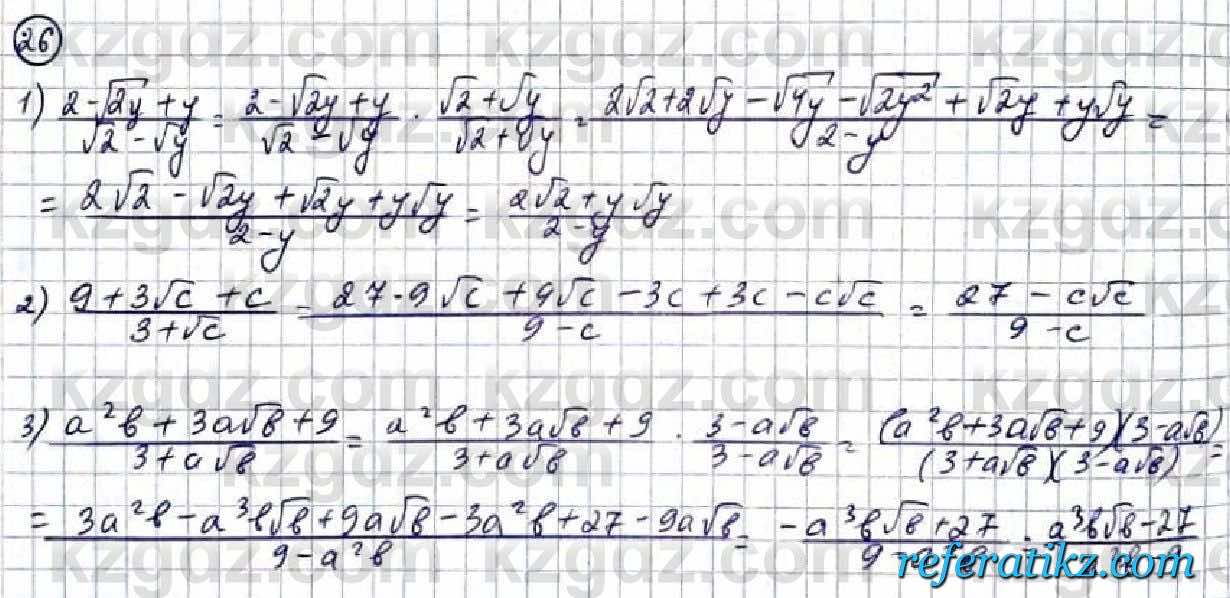 26
1) (2-√2y+y)/(√2-√y) = (2-√2y+y)/(√2-√y) · (√2+√y)/(√2+√y) = (2√2+2√y-√4y-√2y²+√2y+y√y)/(2-y) =
= (2√2-√2y+√2y+y√y)/(2-y) = (2√2+y√y)/(2-y)
2) (9+3√c+c)/(3+√c) = (27-9√c+9√c-3c+3c-c√c)/(9-c) = (27-c√c)/(9-c)
3) (a²b+3a√b+9)/(3+a√b) = (a²b+3a√b+9)/(3+a√b) · (3-a√b)/(3-a√b) = ((a²b+3a√b+9)(3-a√b))/((3+a√b)(3-a√b)) =
= (3a²b-a³b√b+9a√b-3a²b+27-9a√b)/(9-a²b) = (-a³b√b+27)/ (a³b√b-27)/
kzgdz.com
referatikz.com